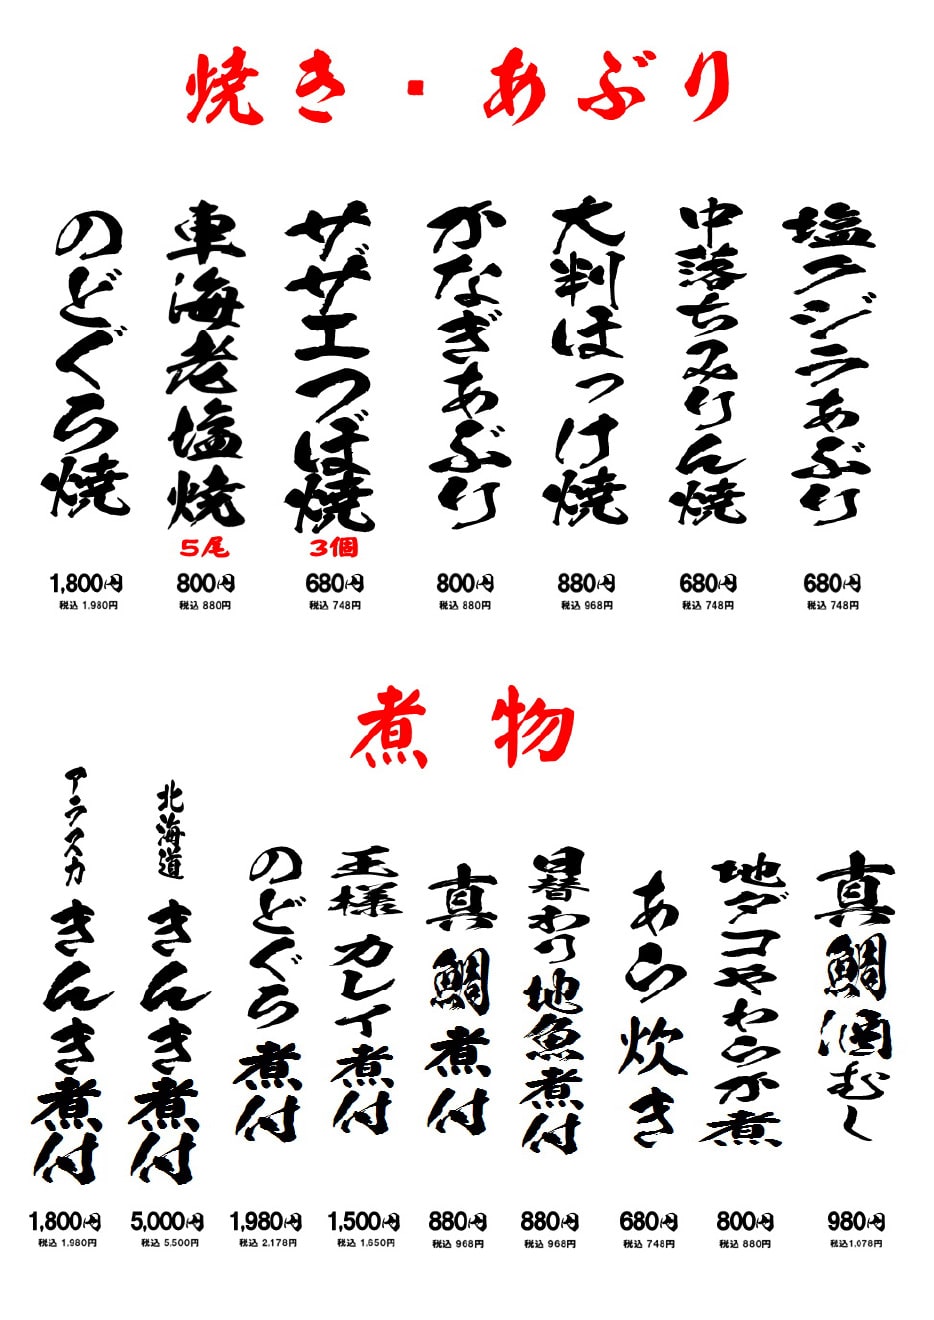 焼き・あぶり
塩クジラあぶり
680円
税込 748円
中落ちみりん焼
680円
税込 748円
大判ほっけ焼
880円
税込 968円
かなぎあぶり
800円
税込 880円
サザエつぼ焼
3個
680円
税込 748円
車海老塩焼
5尾
800円
税込 880円
のどぐろ焼
1,800円
税込 1.980円
煮物
真鯛酒むし
980円
税込1.078円
地ダコやわらか煮
800円
税込 880円
あら炊き
680円
税込 748円
日替わり地魚煮付
880円
税込 968円
真鯛煮付
880円
税込 968円
王様カレイ煮付
1,500円
税込 1.650円
のどぐろ煮付
1,980円
税込 2.178円
北海道
きんき煮付
5,000円
税込 5.500円
アラスカ
きんき煮付
1,800円
税込 1.980円